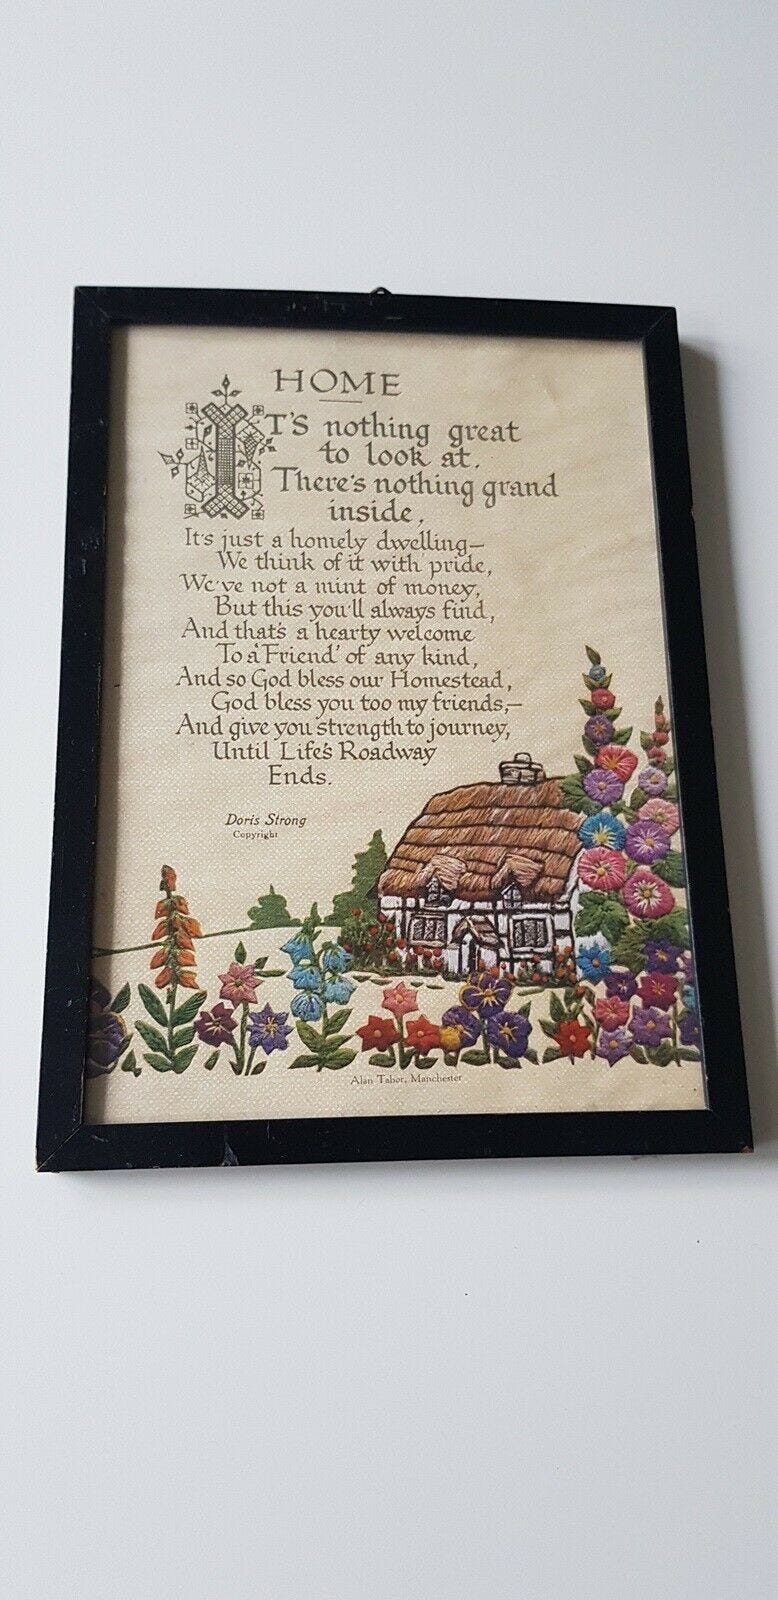 HOME
IT'S nothing great
to look at.
There's nothing grand
inside,
It's just a homely dwelling—
We think of it with pride,
We've not a mint of money,
But this you'll always find,
And that's a hearty welcome
To a 'Friend' of any kind,
And so God bless our Homestead,
God bless you too my friends,—
And give you strength to journey,
Until Life's Roadway
Ends.
Doris Strong
Copyright
Alan Tabor, Manchester